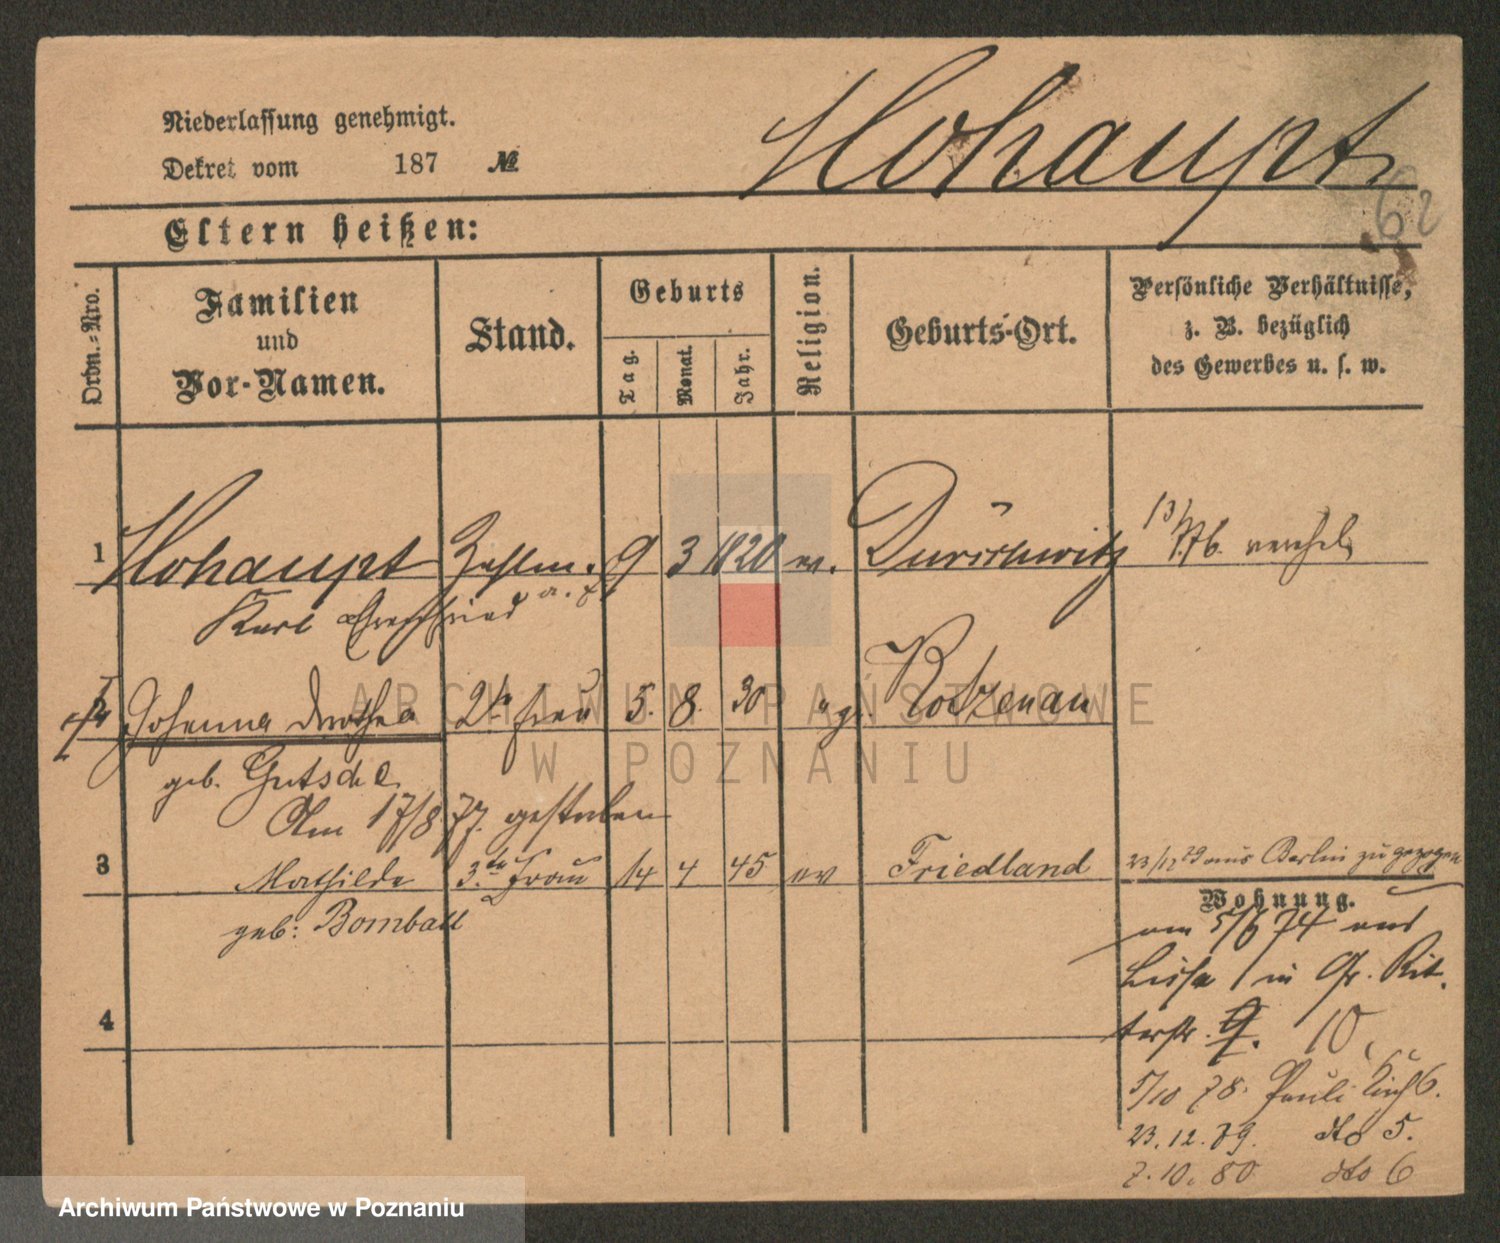 Niederlassung genehmigt.
Dekret vom 187 №
Hohaupt
62
Eltern heißen:
Ordn.-Nro.
Familien
und
Vor-Namen.
Stand.
Geburts
Tag.
Monat.
Jahr.
Religion.
Geburts-Ort.
Persönliche Verhältnisse,
z. B. bezüglich
des Gewerbes u. s. w.
1 Hohaupt 9 3 1820 ev. 13/
Karl
Johanna Dorothea 2te Frau 5. 8. 30 Kotzenau
geb. Gutsche
Am 17/8 77. gestorben
3 Mathilde 3.te Frau 14 4 45 ev Friedland 23/12 79 aus Berlin zugezogen
geb: Bomball
Wohnung.
am 5/6 74 aus
Lissa in Gr. Rit-
terstr. 9. 10,
5/10 78. Pauli Kirch 6.
23.12.79. dto 5.
7.10.80 dto 6
4
ARCHIWUM PAŃSTWOWE
W POZNANIU
Archiwum Państwowe w Poznaniu